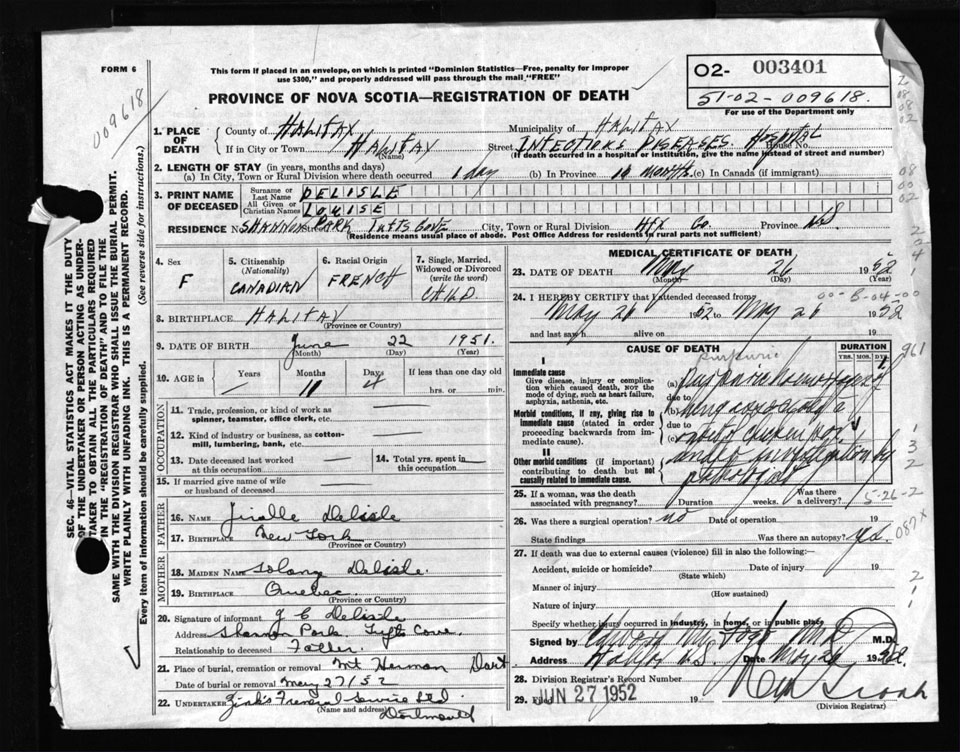 FORM 6
This form if placed in an envelope, on which is printed "Dominion Statistics—Free, penalty for improper
use $300," and properly addressed will pass through the mail "FREE"
02- 003401
51-02-009618.
For use of the Department only
009618
PROVINCE OF NOVA SCOTIA—REGISTRATION OF DEATH
SEC. 46—VITAL STATISTICS ACT MAKES IT THE DUTY
OF THE UNDERTAKER OR PERSON ACTING AS UNDER-
TAKER TO OBTAIN ALL THE PARTICULARS REQUIRED
IN THE "REGISTRATION OF DEATH" AND TO FILE THE
SAME WITH THE DIVISION REGISTRAR WHO SHALL ISSUE THE BURIAL PERMIT.
WRITE PLAINLY WITH UNFADING INK. THIS IS A PERMANENT RECORD.
Every item of information should be carefully supplied. (See reverse side for instructions.)
1. PLACE OF DEATH
County of HALIFAX Municipality of HALIFAX
If in City or Town HALIFAX (Name) Street INFECTIOUS DISEASES Hospital House No.
(If death occurred in a hospital or institution, give the name instead of street and number)
2. LENGTH OF STAY (in years, months and days)
(a) In City, Town or Rural Division where death occurred 1 day (b) In Province 11 months (c) In Canada (if immigrant)
3. PRINT NAME OF DECEASED
Surname or Last Name DELISLE
All Given or Christian Names LOUISE
RESIDENCE No. SHANNON PARK TUFTS COVE City, Town or Rural Division Hfx Co. Province NS
(Residence means usual place of abode. Post Office Address for residents in rural parts not sufficient)
4. Sex F
5. Citizenship (Nationality) CANADIAN
6. Racial Origin FRENCH
7. Single, Married, Widowed or Divorced (write the word) CHILD.
8. BIRTHPLACE HALIFAX
(Province or Country)
9. DATE OF BIRTH June 22 1951.
(Month) (Day) (Year)
10. AGE in Years Months 11 Days 4 If less than one day old hrs. or min.
OCCUPATION
11. Trade, profession, or kind of work as spinner, teamster, office clerk, etc.
12. Kind of industry or business, as cotton-mill, lumbering, bank, etc.
13. Date deceased last worked at this occupation
14. Total yrs. spent in this occupation
15. If married give name of wife or husband of deceased
FATHER
16. NAME Delisle
17. BIRTHPLACE New York
(Province or Country)
MOTHER
18. MAIDEN NAME Solang Delisle.
19. BIRTHPLACE Quebec.
(Province or Country)
20. Signature of informant J C Delisle
Address Shannon Park. Tufts Cove.
Relationship to deceased Father.
21. Place of burial, cremation or removal Mt Herman Dart
Date of burial or removal May 27/52
22. UNDERTAKER Zink's Funeral Service Ltd
(Name and address) Dartmouth
MEDICAL CERTIFICATE OF DEATH
23. DATE OF DEATH May 26 1952
(Month) (Day)
00-B-04-00
24. I HEREBY CERTIFY that I attended deceased from
May 26 1952 to May 26 1952
and last saw h alive on 19
CAUSE OF DEATH
DURATION
YRS. MOS. DYS.
961
I
Immediate cause
Give disease, injury or complication which caused death, NOT the mode of dying, such as heart failure, asphyxia, asthenia, etc.
Morbid conditions, if any, giving rise to immediate cause (stated in order proceeding backwards from immediate cause).
II
Other morbid conditions (if important) contributing to death but not causally related to immediate cause.
(a)
due to
(b) being considered a
due to
(c) of chicken pox.
under investigation by
pathologist
25. If a woman, was the death associated with pregnancy? Duration weeks. Was there a delivery?
5-26-2
26. Was there a surgical operation? no Date of operation 19
State findings Was there an autopsy? yes.
087X
27. If death was due to external causes (violence) fill in also the following:—
Accident, suicide or homicide? Date of injury 19
(State which)
Manner of injury
(How sustained)
Nature of injury
Specify whether injury occurred in industry, in home, or in public place
Signed by MD M.D.
Address Halifax N.S. Date May 26 1952.
28. Division Registrar's Record Number
29. Filed JUN 27 1952 19
(Division Registrar)